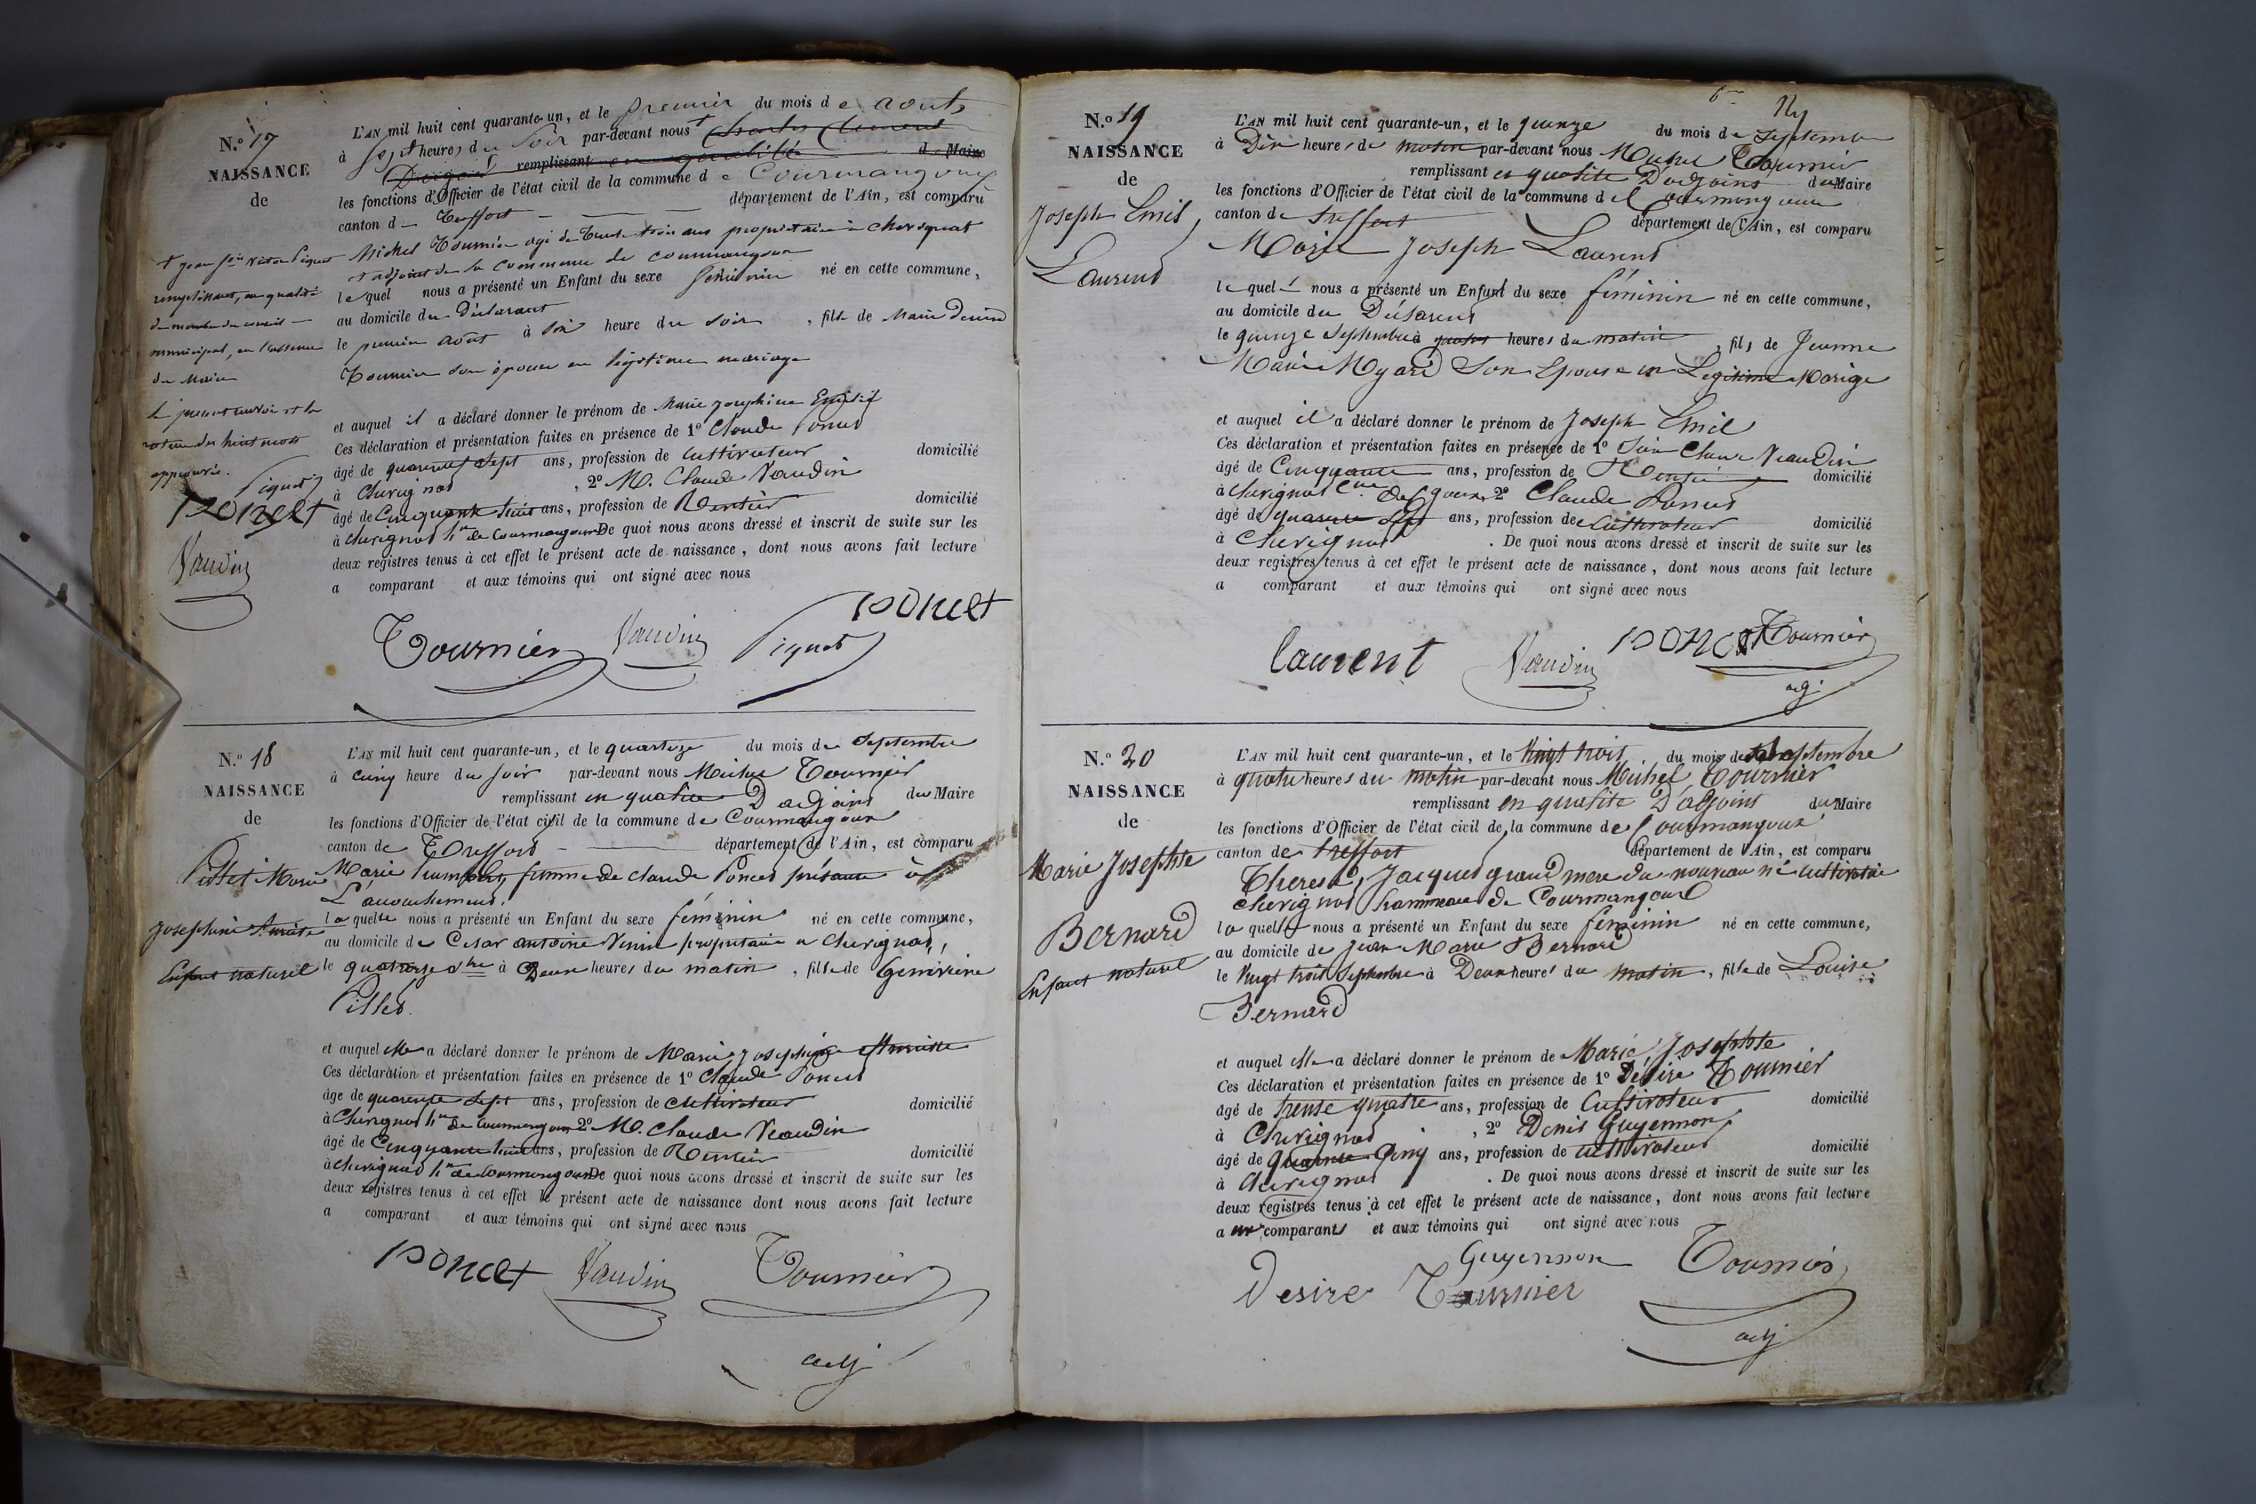 N.º 17
NAISSANCE
de
L'AN mil huit cent quarante-un, et le premier du mois de août
à sept heures du soir par-devant nous + Charles Clement
remplissant en qualité de Maire
les fonctions d'Officier de l'état civil de la commune de Courmangoux
canton de Treffort département de l'Ain, est comparu
Michel Tournier agé de trente trois ans propriétaire à Chevignat
et adjoint de la commune de courmangoux
lequel nous a présenté un Enfant du sexe feminin né en cette commune,
au domicile du Déclarant
le premier août à six heure du soir, fille de Marie
Tournier son épouse en légitime mariage
et auquel il a déclaré donner le prénom de Marie josephine
Ces déclaration et présentation faites en présence de 1º Claude Poncet
âgé de quarente sept ans, profession de cultivateur domicilié
à Chevignat, 2º M. Claude Vaudin
âgé de Cinquante huit ans, profession de Rentier domicilié
à Chevignat h.au de Courmangoux De quoi nous avons dressé et inscrit de suite sur les
deux registres tenus à cet effet le présent acte de naissance, dont nous avons fait lecture
a comparant et aux témoins qui ont signé avec nous
+ jean Piquet
remplissant, en qualité
de membre du conseil
municipal, en l'absence
du Maire
le présent renvoi et la
rature des huit mots
approuvés.
Piquet
Poncet
Vaudin
Poncet
Tournier Vaudin Piquet
N.º 18
NAISSANCE
de
Pillet Marie
Josephine
Enfant naturel
L'AN mil huit cent quarante-un, et le quartorze du mois de Septembre
à cinq heure du soir par-devant nous Michel Tournier
remplissant en qualité D'adjoint du Maire
les fonctions d'Officier de l'état civil de la commune de Courmangoux
canton de Treffort département de l'Ain, est comparu
Marie femme de claude Poncet présante à
L'accouchement.
laquelle nous a présenté un Enfant du sexe féminin né en cette commune,
au domicile de Cesar antoine propriétaire a Chevignat,
le quatorze à Deux heures du matin, fille de Genevieve
Pillet.
et auquel elle a déclaré donner le prénom de Marie Josephine
Ces déclaration et présentation faites en présence de 1º Claude Poncet
âge de quarente sept ans, profession de cultivateur domicilié
à Chevignat h.au de Courmangoux 2º M. Claude Vaudin
âgé de Cinquante huit ans, profession de Rentier domicilié
à Chevignat h.au de Courmangoux De quoi nous avons dressé et inscrit de suite sur les
deux registres tenus à cet effet le présent acte de naissance dont nous avons fait lecture
a comparant et aux témoins qui ont signé avec nous
Poncet Vaudin Tournier
adj
N.º 19
NAISSANCE
de
Joseph Emil
Laurent
L'AN mil huit cent quarante-un, et le quinze du mois de Septembre
à Dix heures du matin par-devant nous Michel Tournier
remplissant en qualité D'adjoint du Maire
les fonctions d'Officier de l'état civil de la commune de Courmangoux
canton de Treffort département de l'Ain, est comparu
Marie Joseph Laurent
lequel nous a présenté un Enfant du sexe féminin né en cette commune,
au domicile du Déclarent
le quinze Septembre à quatre heures du matin, fils de Jeanne
Marie Myard Son Epouse en Legitime Marige
et auquel il a déclaré donner le prénom de Joseph Emil
Ces déclaration et présentation faites en présence de 1º Claude Vaudin
âgé de Cinquante ans, profession de Rentié domicilié
à Chevignat 2º Claude Poncet
âgé de quarente sept ans, profession de Cultivateur domicilié
à Chevignat. De quoi nous avons dressé et inscrit de suite sur les
deux registres tenus à cet effet le présent acte de naissance, dont nous avons fait lecture
a comparant et aux témoins qui ont signé avec nous
Laurent Vaudin Poncet Tournier
adj.
N.º 20
NAISSANCE
de
Marie Josephte
Bernard
Enfant naturel
L'AN mil huit cent quarante-un, et le Vingt trois du mois de Septembre
à quatre heures du matin par-devant nous Michel Tournier
remplissant en qualité D'adjoint du Maire
les fonctions d'Officier de l'état civil de la commune de Courmangoux
canton de Treffort département de l'Ain, est comparu
Therese Jacquet grand mere du nouveau né cultivatrice
Chevignat hammeau de Courmangoux
laquelle nous a présenté un Enfant du sexe féminin né en cette commune,
au domicile de Jean Marie Bernard
le Vingt trois Septembre à Deux heures du matin, fille de Louise
Bernard
et auquel elle a déclaré donner le prénom de Marie Josephte
Ces déclaration et présentation faites en présence de 1º Désire Tournier
âgé de trente quatre ans, profession de Cultivateur domicilié
à Chevignat, 2º Denis Guyennon
âgé de quarente Cinq ans, profession de cultivateur domicilié
à Chevignat. De quoi nous avons dressé et inscrit de suite sur les
deux registres tenus à cet effet le présent acte de naissance, dont nous avons fait lecture
a comparant et aux témoins qui ont signé avec nous
Guyennon Tournier
Desire Tournier
adj